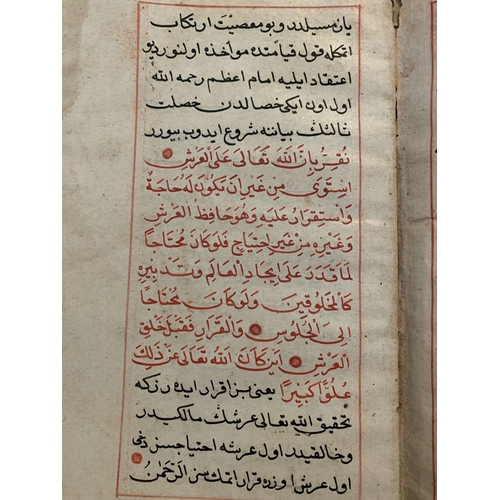 یازمسیلدر وبو معصیت ارتکاب
اتمکله قول قیامتده مواخذه اولنور دیو
اعتقاد ایلیه امام اعظم رحمه الله
اول اون ایکی خصالدن خصلت
ثالثك بیاننه شروع ایدوب بیورر
نُقِرُّ بِاَنَّ اللهَ تَعَالٰی عَلَی الْعَرْشِ
اسْتَوٰی مِنْ غَیْرِ اَنْ یَکُونَ لَهُ حَاجَةٌ
وَاسْتِقْرَارٌ عَلَیْهِ وَهُوَ حَافِظُ الْعَرْشِ
وَغَیْرِهِ مِنْ غَیْرِ احْتِیَاجٍ فَلَوْ کَانَ مُحْتَاجًا
لَمَا قَدَرَ عَلٰی اِیجَادِ الْعَالَمِ وَتَدْبِیرِهِ
کَالْمَخْلُوقِینَ وَلَوْ کَانَ مُحْتَاجًا
اِلَی الْجُلُوسِ وَالْقَرَارِ فَقَبْلَ خَلْقِ
الْعَرْشِ اَیْنَ کَانَ اللهُ تَعَالٰی عَنْ ذٰلِكَ
عُلُوًّا کَبِیرًا یعنی بز اقرار ایده رزکه
تحقیق الله تعالی عرشك مالکیدر
وخالقیدر اول عرشه احتیاجسز دخی
اول عرش اوزره قرار اتمك سز الرَّحْمٰنُ